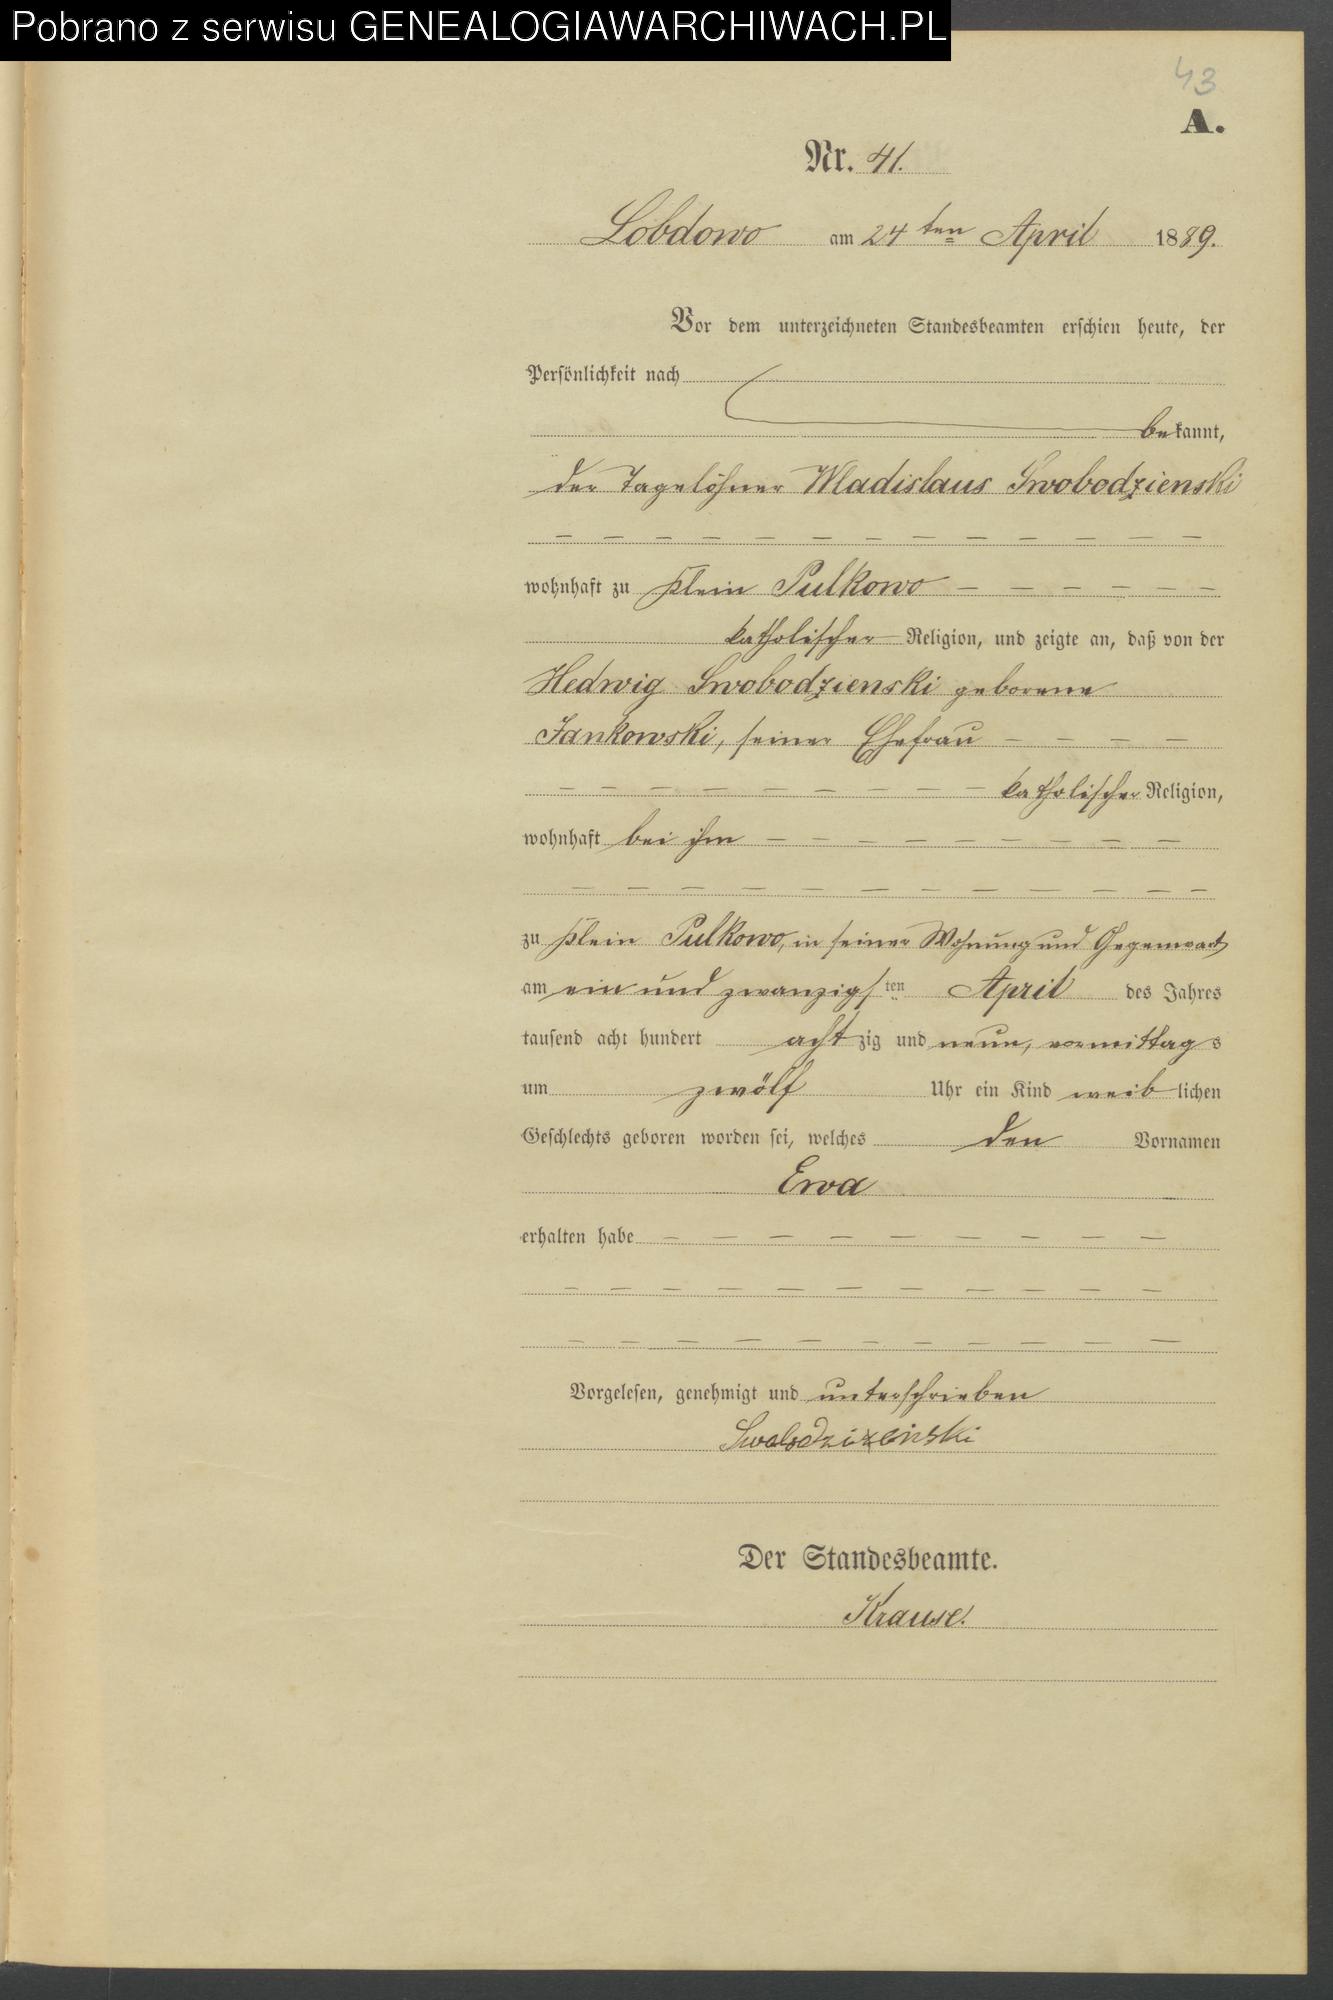 Pobrano z serwisu GENEALOGIAWARCHIWACH.PL
43
A.
Nr. 41.
Lobdowo am 24ten April 1889.
Vor dem unterzeichneten Standesbeamten erschien heute, der
Persönlichkeit nach
bekannt,
der Tagelöhner Wladislaus Swobodzienski
— — — — — — — — — — — — —
wohnhaft zu Klein Pulkowo — — — — — —
katholischer Religion, und zeigte an, daß von der
Hedwig Swobodzienski geborene
Jankowski, seiner Ehefrau — — — —
— — — — — — — — — katholischer Religion,
wohnhaft bei ihm — — — — — — — — —
— — — — — — — — — — — —
zu Klein Pulkowo, in seiner Wohnung und Gegenwart
am ein und zwanzigsten April des Jahres
tausend acht hundert achtzig und neun, vormittags
um zwölf Uhr ein Kind weiblichen
Geschlechts geboren worden sei, welches den Vornamen
Ewa
erhalten habe — — — — — — — — —
— — — — — — — — — — —
— — — — — — — — — — —
Vorgelesen, genehmigt und unterschrieben
Der Standesbeamte.
Krause.